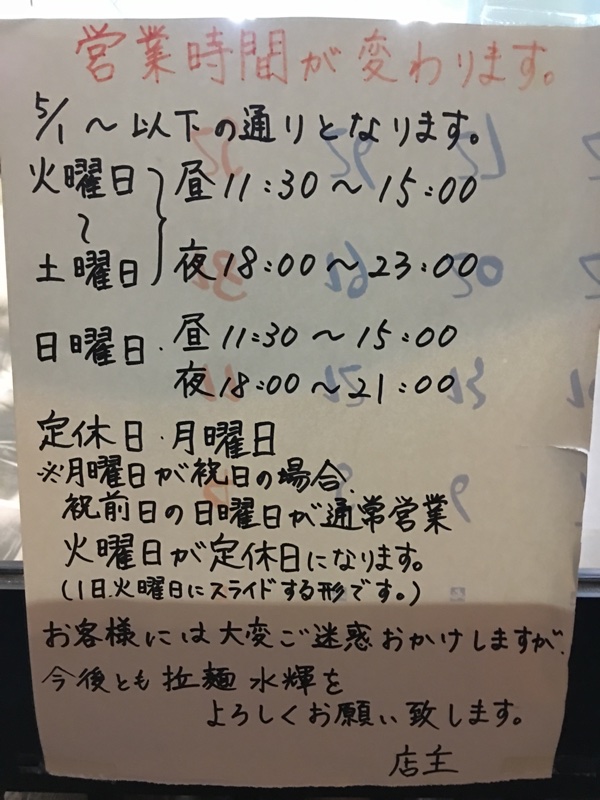 営業時間が変わります。
5/1～以下の通りとなります。
火曜日
～
土曜日
昼11:30～15:00
夜18:00～23:00
日曜日.昼11:30～15:00
夜18:00～21:00
定休日.月曜日
※月曜日が祝日の場合.
祝前日の日曜日が通常営業
火曜日が定休日になります。
(1日.火曜日にスライドする形です。)
お客様には大変ご迷惑おかけしますが.
今後とも拉麺 水輝を
よろしくお願い致します。
店主